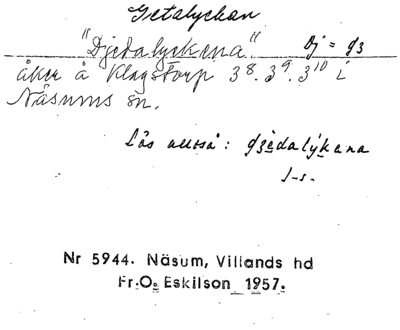 Getalyckan
"Djedalyckena" Dj = gz
åker å Klagstorp 3⁸. 3⁹. 3¹⁰ i
Näsums sn.
Läs även: gzèdalýkena
J-s.
Nr 5944. Näsum, Villands hd
Fr.O. Eskilson 1957.